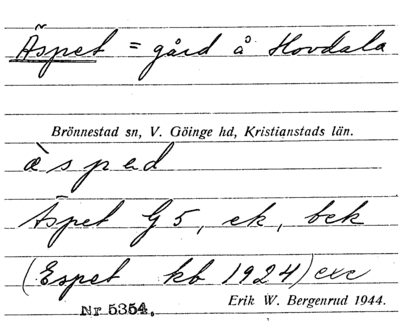 Äspet = gård å Hovdala
Brönnestad sn, V. Göinge hd, Kristianstads län.
ä̀sped
Äspet G5, ek, bek
(Espet kb 1924) exc
Nr 5354. Erik W. Bergenrud 1944.